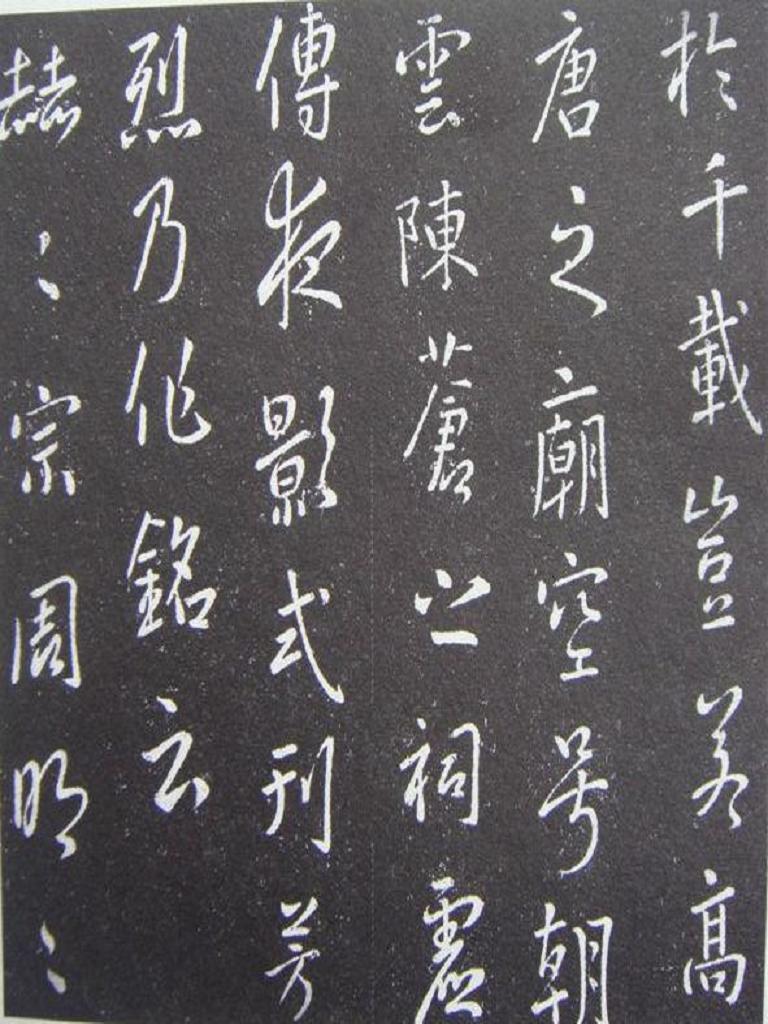 於千載豈若高
唐之廟空号朝
雲陳蒼之祠虛
傳夜影式刊芳
烈乃作銘云
赫〻宗周明〻